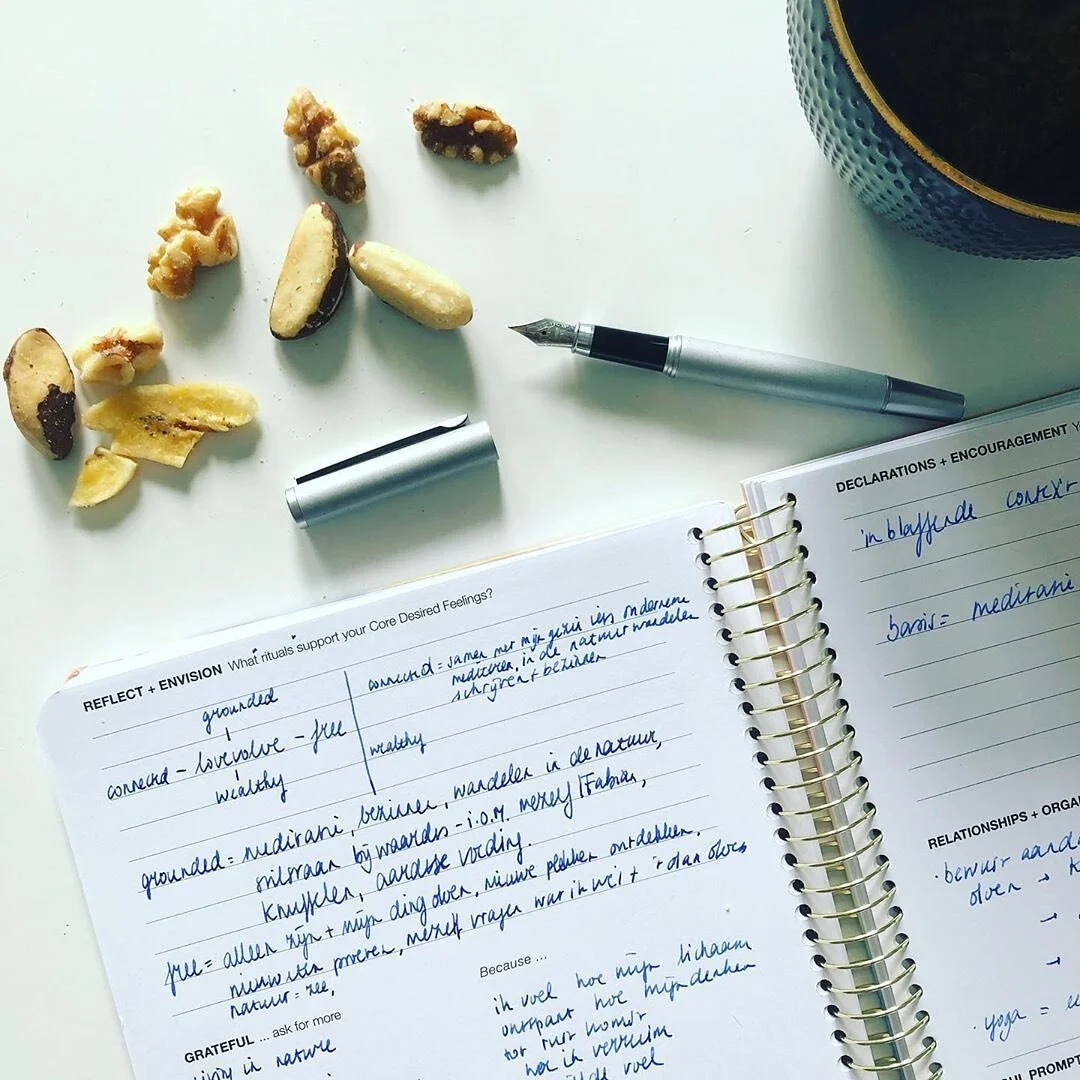 REFLECT + ENVISION What rituals support your Core Desired Feelings?
grounded
connected - love volve - free
wealthy
connected = samen met mijn gezin iets ondernemen
mediteren, in de natuur wandelen
schrijven + bezinnen
wealthy
grounded = meditatie, bezinnen, wandelen in de natuur,
stilstaan bij waardes - i.o.m. mezelf / Fabian,
knuffelen, aardse voeding.
free = alleen zijn + mijn ding doen, nieuwe plekken ontdekken,
nieuw eten proeven, mezelf vragen wat ik wil + 't dan doen
natuur = zee,
GRATEFUL ... ask for more
living in nature
Because ...
ik voel hoe mijn lichaam
ontspant hoe mijn denken
tot rust komt
hoe ik verruim
voel
DECLARATIONS + ENCOURAGEMENT
in blaffende context
basis = meditatie
RELATIONSHIPS +
· bewust
doen →
→
→
· yoga =
PROMPT